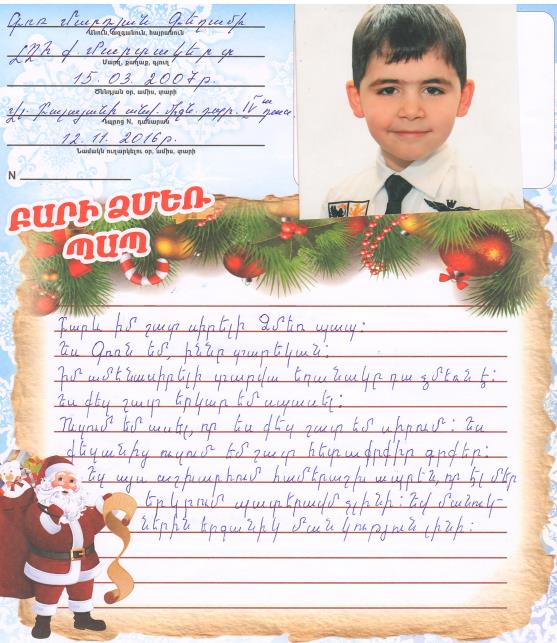 Գոռ Մարտյան Գեղամի
Անուն, ազգանուն, հայրանուն
ԼՂՀ ք. Մարտակերտ
Մարզ, քաղաք, գյուղ
15. 03. 2007թ.
Ծննդյան օր, ամիս, տարի
միջն. դպր. IV ա դաս.
Դպրոց N, դասարան
12. 11. 2016թ.
Նամակն ուղարկելու օր, ամիս, տարի
N
ԲԱՐԻ ՁՄԵՌ
ՊԱՊ
Բարև իմ շատ սիրելի Ձմեռ պապ:
Ես Գոռն եմ, իննը տարեկան:
Իմ ամենասիրելի տարվա եղանակը դա ձմեռն է:
Ես քեզ շատ երկար եմ սպասել:
Ուզում եմ ասել, որ ես քեզ շատ եմ սիրում: Ես
քեզանից ուզում եմ շատ հետաքրքիր գրքեր:
Եվ այս աշխարհում համերաշխ ապրեն, որ էլ մեր
երկրում պատերազմ չլինի: Եվ մանուկ-
ներին երջանիկ մանկություն լինի: